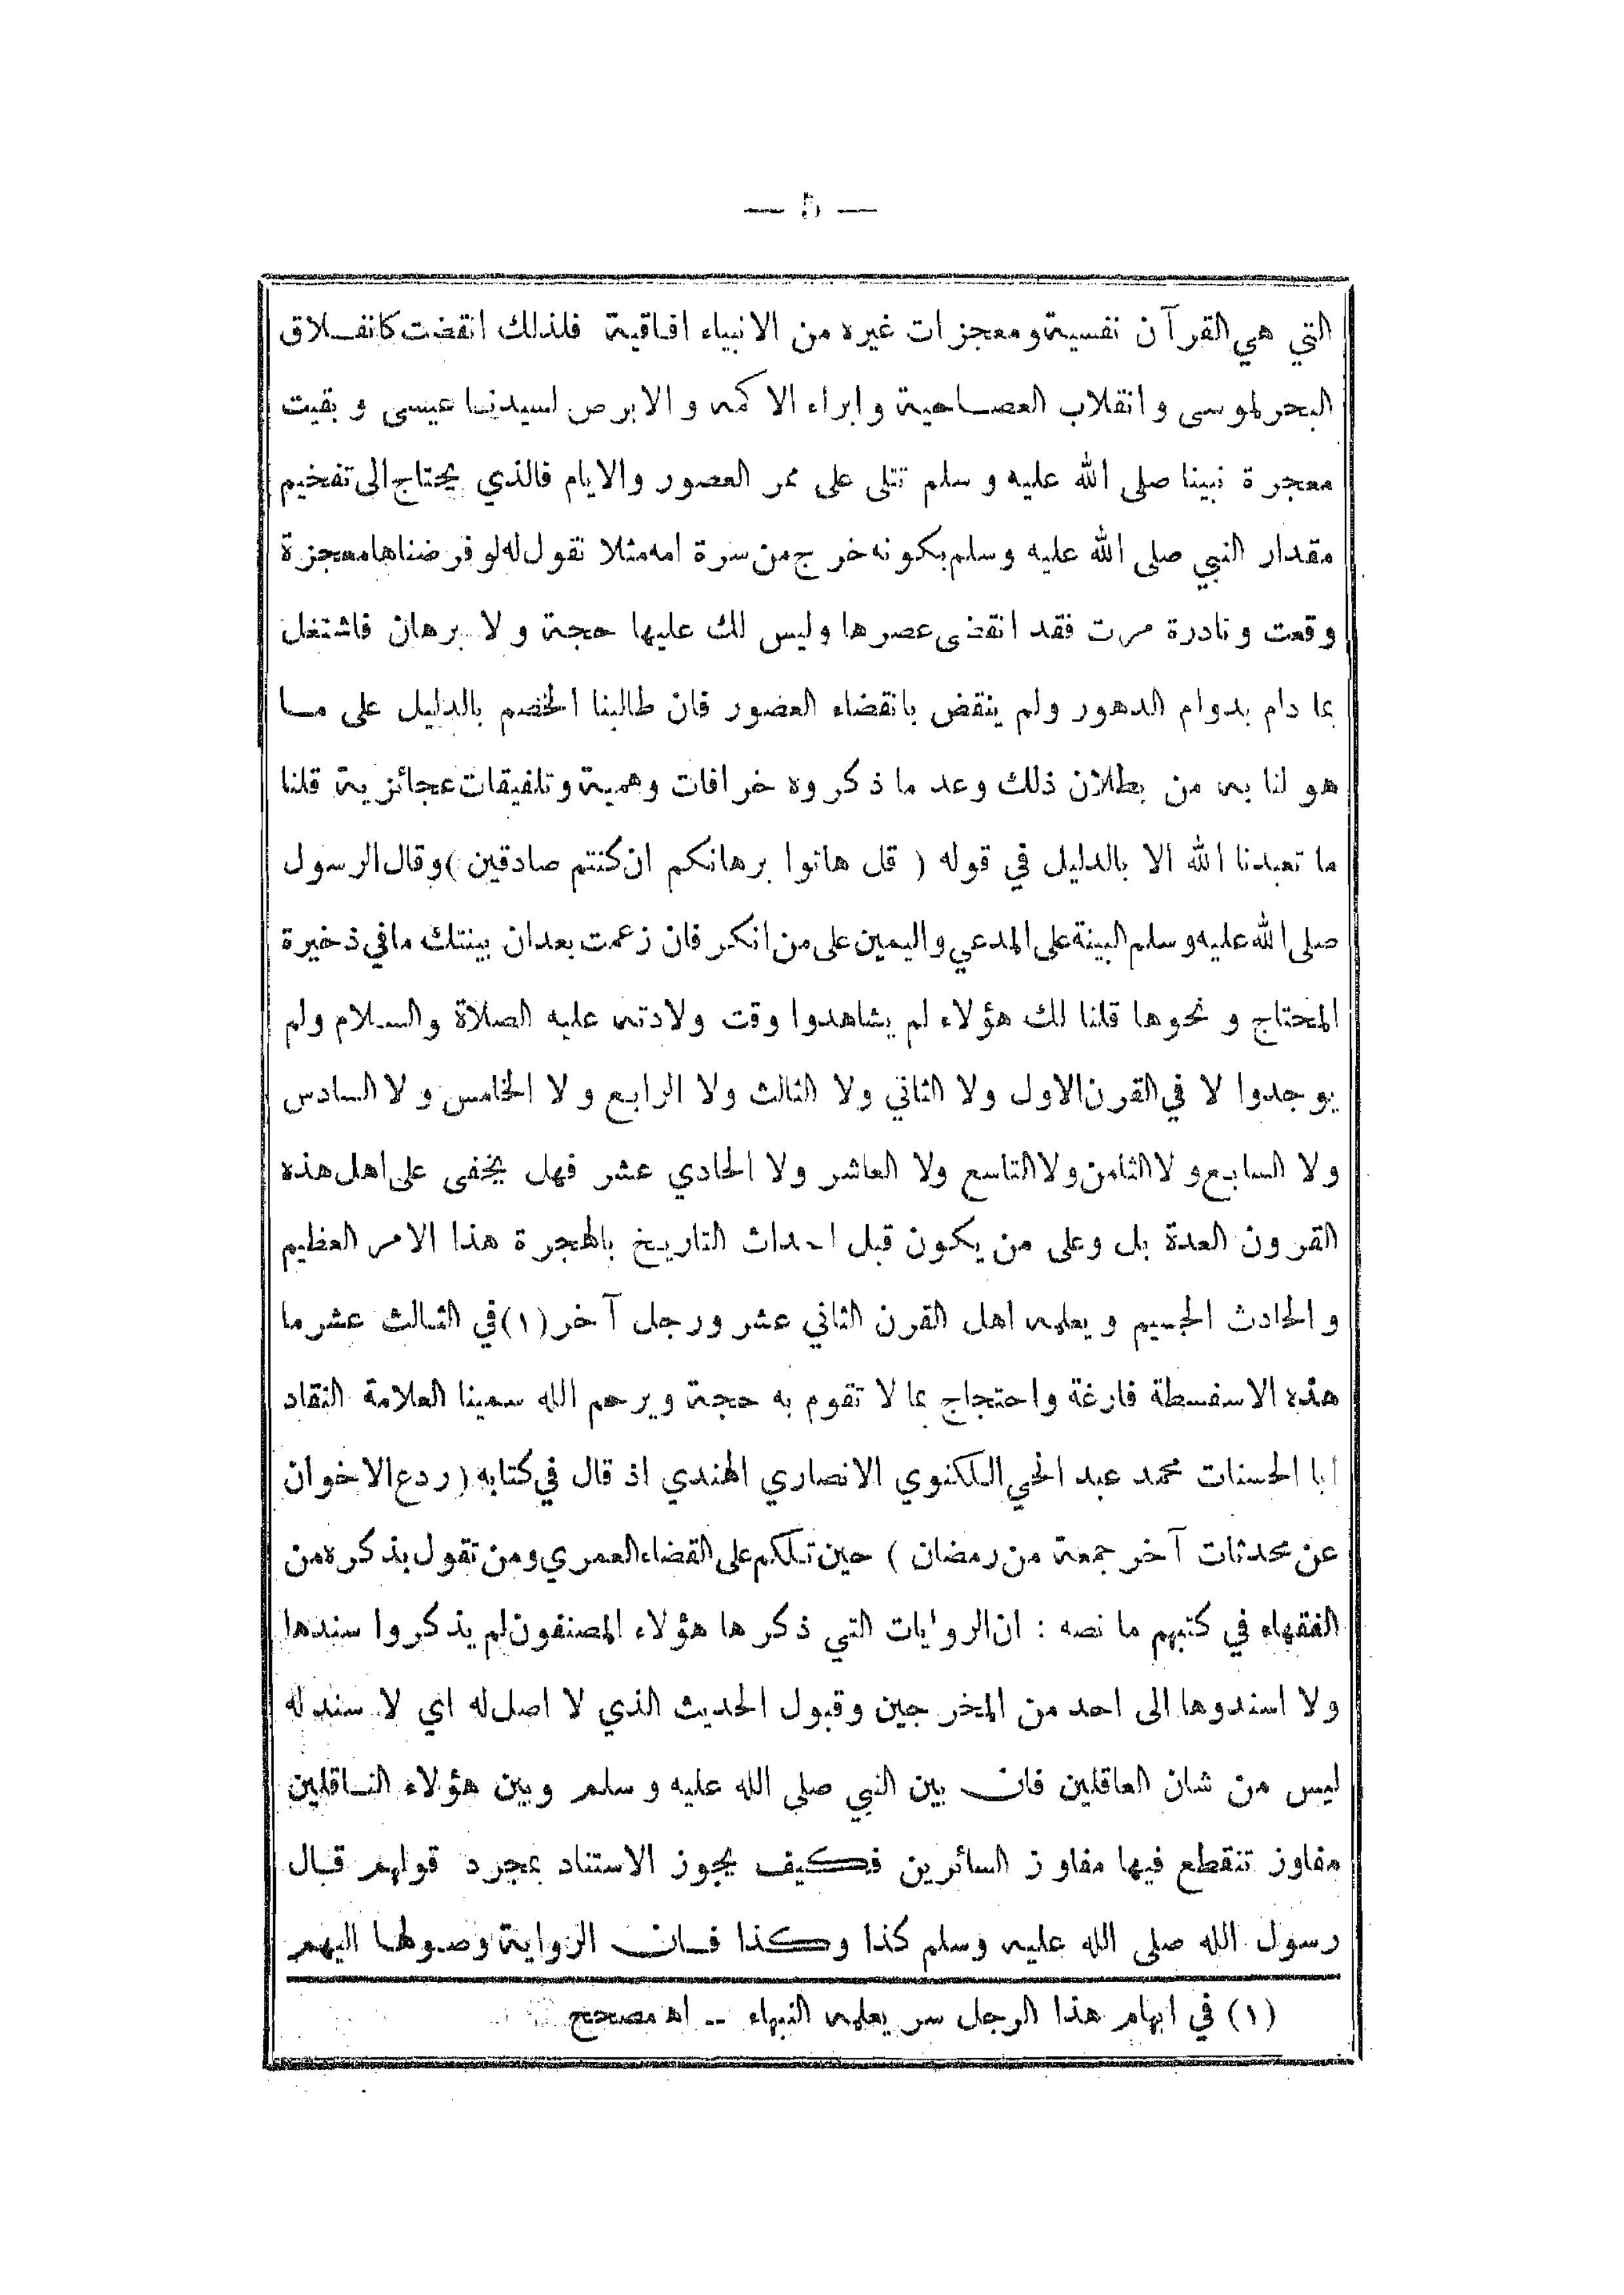 — ٥ —
التي هي القرآن نفسية ومعجزات غيره من الانبياء افاقية فلذلك انقضت كانفلاق
البحر لموسى وانقلاب العصا حية وابراء الاكمه والابرص لسيدنا عيسى وبقيت
معجزة نبينا صلى الله عليه وسلم تتلى على ممر العصور والايام فالذي يحتاج الى تفخيم
مقدار النبي صلى الله عليه وسلم بكونه خرج من سرة امه مثلا نقول له لو فرضناها معجزة
وقعت ونادرة مرت فقد انقضى عصرها وليس لك عليها حجة ولا برهان فاشتغل
بما دام بدوام الدهور ولم ينقض بانقضاء العصور فان طالبنا الخصم بالدليل على ما
هو لنا به من بطلان ذلك وعد ما ذكروه خرافات وهمية وتلفيقات عجائزية قلنا
ما تعبدنا الله الا بالدليل في قوله ( قل هاتوا برهانكم ان كنتم صادقين ) وقال الرسول
صلى الله عليه وسلم البينة على المدعي واليمين على من انكر فان زعمت بعد ان بينتك ما في ذخيرة
المحتاج ونحوها قلنا لك هؤلاء لم يشاهدوا وقت ولادته عليه الصلاة والسلام ولم
يوجدوا لا في القرن الاول ولا الثاني ولا الثالث ولا الرابع ولا الخامس ولا السادس
ولا السابع ولا الثامن ولا التاسع ولا العاشر ولا الحادي عشر فهل يخفى على اهل هذه
القرون العدة بل وعلى من يكون قبل احداث التاريخ بالهجرة هذا الامر العظيم
والحادث الجسيم ويعلمه اهل القرن الثاني عشر ورجل آخر (١) في الثالث عشر ما
هذه الا سفسطة فارغة واحتجاج بما لا تقوم به حجة ويرحم الله سمينا العلامة النقاد
ابا الحسنات محمد عبد الحي اللكنوي الانصاري الهندي اذ قال في كتابه ( ردع الاخوان
عن محدثات آخر جمعة من رمضان ) حين تكلم على القضاء العمري ومن تقول بذكره من
الفقهاء في كتبهم ما نصه : ان الروايات التي ذكرها هؤلاء المصنفون لم يذكروا سندها
ولا اسندوها الى احد من المخرجين وقبول الحديث الذي لا اصل له اي لا سند له
ليس من شان العاقلين فان بين النبي صلى الله عليه وسلم وبين هؤلاء الناقلين
مفاوز تنقطع فيها مفاوز السائرين فكيف يجوز الاستناد بمجرد قولهم قال
رسول الله صلى الله عليه وسلم كذا وكذا فان الرواية وصولها اليهم
(١) في ابهام هذا الرجل سر يعلمه النبهاء -- اه مصححه